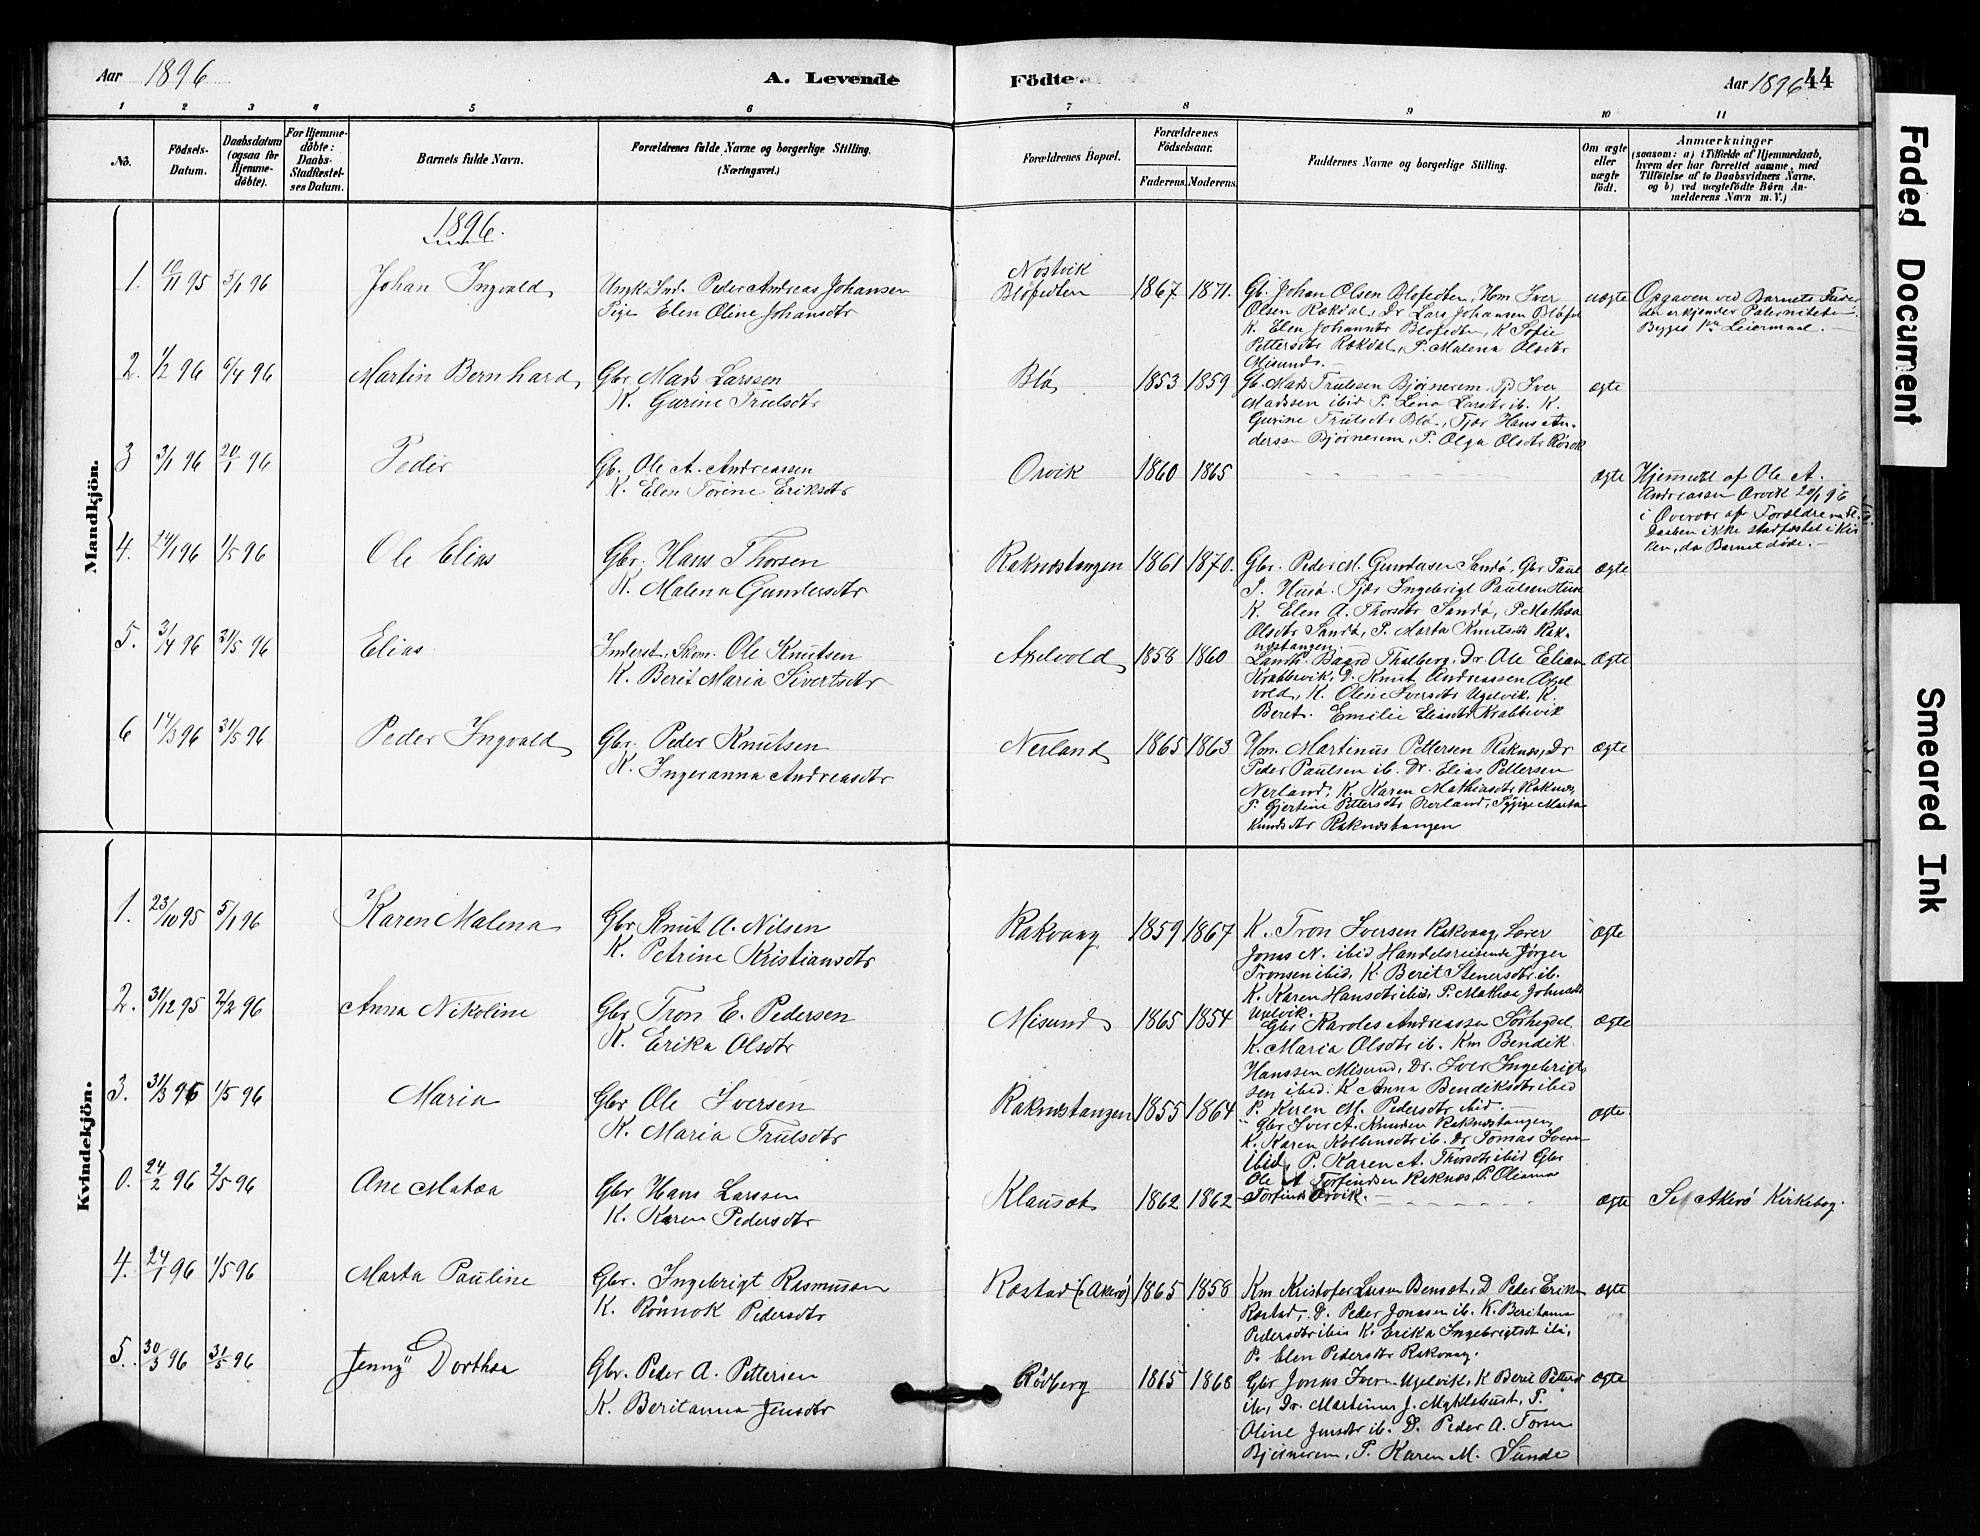 Aar 1896 A. Levende Födte. Aar 1896 44
1 2 3 4 5 6 7 8 9 10 11
No. Födsels-Datum. Daabsdatum (ogsaa for Hjemme-döbte). For Hjemme-döbte: Daabs-Stadfæstel-ses Datum. Barnets fulde Navn. Forældrenes fulde Navne og borgerlige Stilling. (Næringsvei.) Forældrenes Bopæl. Forældrenes Födselsaar. Faderens. Moderens. Faddernes Navne og borgerlige Stilling. Om ægte eller uægte födt. Anmærkninger (saasom: a) i Tilfælde af Hjemmedaab, hvem der har forrettet samme, med Tilföielse af to Daabsvidners Navne, og b) ved uægtefödte Börn An-melderens Navn m. V.)
Mandkjön.
1896.
1. 10/11 95 5/1 96 Johan Ingvald Ungk. Ind. Peder Andreas Johansen Nostvik 1867 1871. Gb. Johan Olsen Blofedten, Um Iver uægte Opgaven ved Barnets Fader
Pige Elen Oline Johansdtr Blofedten Olsen Rækdal, Dr Lars Johansen
der erkjender Paterniteten.
K. Elen Johannsdtr Blofedten, K Sofie
Leiermaal.
Pettersdtr Rækdal, P. Malena Olsdtr
Misund.
2. 1/2 96 6/4 96 Martin Bernhard Gbr Mads Larssen Blø 1853 1859 Gb. Mads Trulssen Bjørnerem, Iver ægte
K. Gurine Trulsdtr
Madssen ibid P. Lena Larsdtr ib. K.
Gurine Trulsdtr Blø, Tjn Hans An-
derssen Bjørnerem, P. Olga Olsdtr
3 3/1 96 20/1 96 Peder Gb. Ole A. Andreassen Orvik 1860 1865 ægte Hjemdbt af Ole A.
K. Elen Torine Eriksdtr
Andreassen Orvik 20/1 96
i Overvær af Forældrene
Daaben ikke stadfæstet i Kir
ken, da Barnet døde.
4. 24/1 96 1/5 96 Ole Elias Gbr. Hans Thorsen Raknestangen 1861 1870. Gbr. Peder M. Gundersen Sandø, Gbr Paul ægte
K. Malena Gundersdtr
J. Husø. Tjn Ingebrigt Paulsen Husø
K. Elen A. Thorsdtr Sandø, P. Mathea
Olsdtr Sandø, P. Marta Knutsdtr Rak-
nestangen.
5. 3/4 96 31/5 96 Elias Inderst. Skom. Ole Knutsen Axelvold 1858 1860 Baard Thalberg, Dr. Ole Elian ægte
K. Berit Maria Sivertsdtr
Krabbevik, D. Knut Andreassen Axel
vold, K. Oline Iversdtr Ugelvik, K.
Beret. Emilie Eliasdtr Krabbevik
6 14/3 96 31/5 96 Peder Ingvald Gbr. Peder Knutsen Nerland 1865 1863 Um. Martinus Pettersen Raknes, Dr ægte
K. Ingeranna Andreasdtr
Peder Paulsen ib. Dr. Elias Pettersen
Nerland, K. Karen Mathiasdtr Raknes,
P. Gjertine Pettersdtr Nerland, Marta
Knudsdtr Raknestangen
Kvindekjön.
1. 23/10 95 5/1 96 Karen Malena Gbr Knut A. Nilsen Rakvaag 1859 1867 K. Tron Iversen Rakvaag, Lærer ægte
K. Petrine Kristiansdtr
Jonas N. ibid Handelsreisende Jørgen
Tronsen ibid. K Berit Stenersdtr ib.
K. Karen Hansdtr ibid, P. Mathea Johnsdtr
Ugelvik.
2. 31/12 95 2/2 96 Anna Nikoline Gbr Tron E. Pedersen Misund 1865 1854 Gbr Karoles Andreassen ægte
K. Erika Olsdtr
K. Maria Olsdtr ib. Km Bendik
Hanssen Misund, Dr. Iver Ingebrigt
sen ibid. K Anna Bendiksdtr ibid
P. Karen M. Pedersdtr ibid.
3. 31/3 96 1/5 96 Maria Gbr Ole Iversen Raknestangen 1855 1864 Gbr Iver A. Knudsen Raknestangen, ægte
K. Maria Trulsdtr
K. Karen Kolbensdtr ib. Dr Tomas Iversen
ibid, P. Karen A. Thorsdtr ibid Gbr
Ole A Torfindsen Raknes, P. Olianna
Torfindsd Orvik.
0. 24/2 96 2/5 96 Ane Matea Gbr Hans Larssen Klauset 1862 1862 ægte Se Akerö Kirkebog.
K. Karen Pedersdtr
4. 24/1 96 1/5 96 Marta Pauline Gbr. Ingebrigt Rasmussen Rostad (Akerö) 1865 1858 Km Kristofer Larsen Benset, D Peder Eriksen ægte
K. Rönnok Pedersdtr
Rostad, D. Peder Jonassen ib. K. Beritanna
Pedersdtr ibid K. Erika Ingebrigtsdt ibi,
P. Elen Pedersdtr Rakvaag.
5. 30/3 96 31/5 96 Jenny Dorthea Gbr. Peder A. Pettersen Rödberg 1865 1868 Gbr Jonas Iversen Ugelvik, K Berit Pettersd ægte
K. Beritanna Jensdtr
ib, Dr. Martinus J. Myklebust, P.
Oline Jensdtr ib. D. Peder A. Toresen
Bjørnerem, P. Karen M. Sunde
Faded Document
Smeared Ink